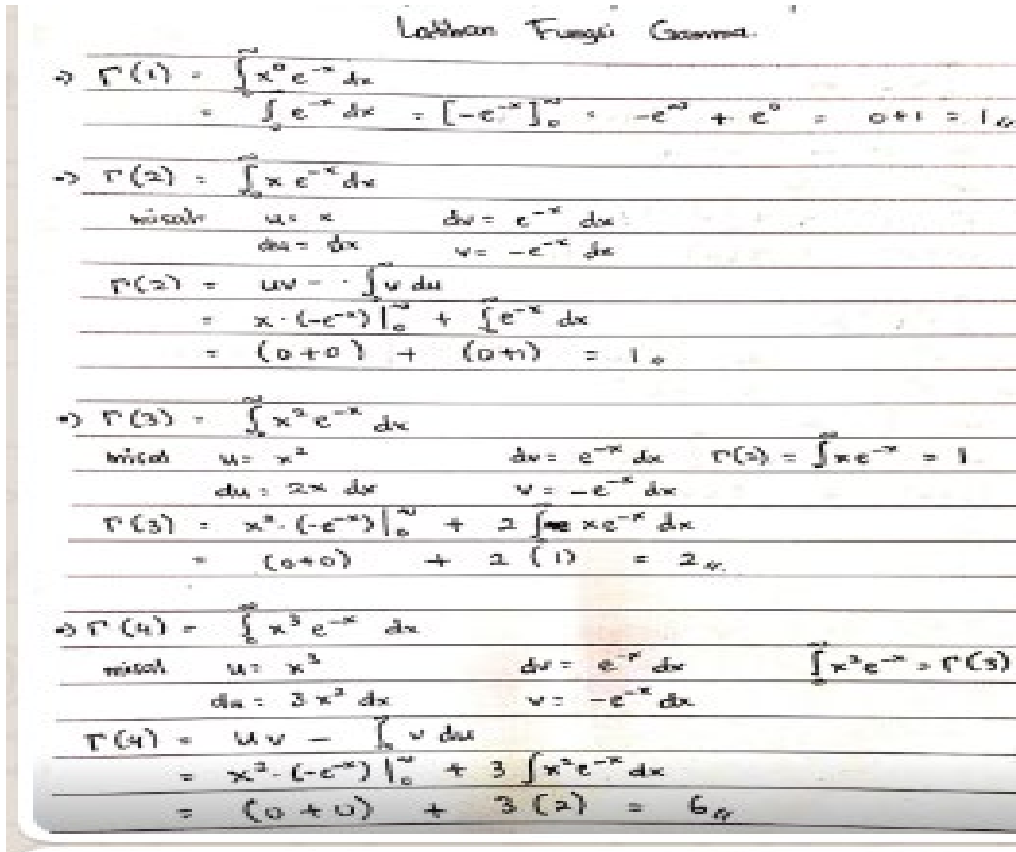 Latihan Fungsi Gamma
=> Γ(1) = ∫₀^∞ x⁰ e^-x dx
= ∫₀^∞ e^-x dx = [-e^-x]₀^∞ = -e^∞ + e⁰ = 0+1 = 1
=> Γ(2) = ∫₀^∞ x e^-x dx
misal u = x dv = e^-x dx
du = dx v = -e^-x dx
Γ(2) = uv - ∫ v du
= x · (-e^-x) |₀^∞ + ∫ e^-x dx
= (0+0) + (0+1) = 1
=> Γ(3) = ∫₀^∞ x² e^-x dx
misal u = x² dv = e^-x dx Γ(2) = ∫₀^∞ x e^-x = 1
du = 2x dx v = -e^-x dx
Γ(3) = x² · (-e^-x) |₀^∞ + 2 ∫ x e^-x dx
= (0+0) + 2 (1) = 2
=> Γ(4) = ∫₀^∞ x³ e^-x dx
misal u = x³ dv = e^-x dx ∫₀^∞ x² e^-x = Γ(3)
du = 3x² dx v = -e^-x dx
Γ(4) = uv - ∫₀^∞ v du
= x³ · (-e^-x) |₀^∞ + 3 ∫ x² e^-x dx
= (0+0) + 3 (2) = 6